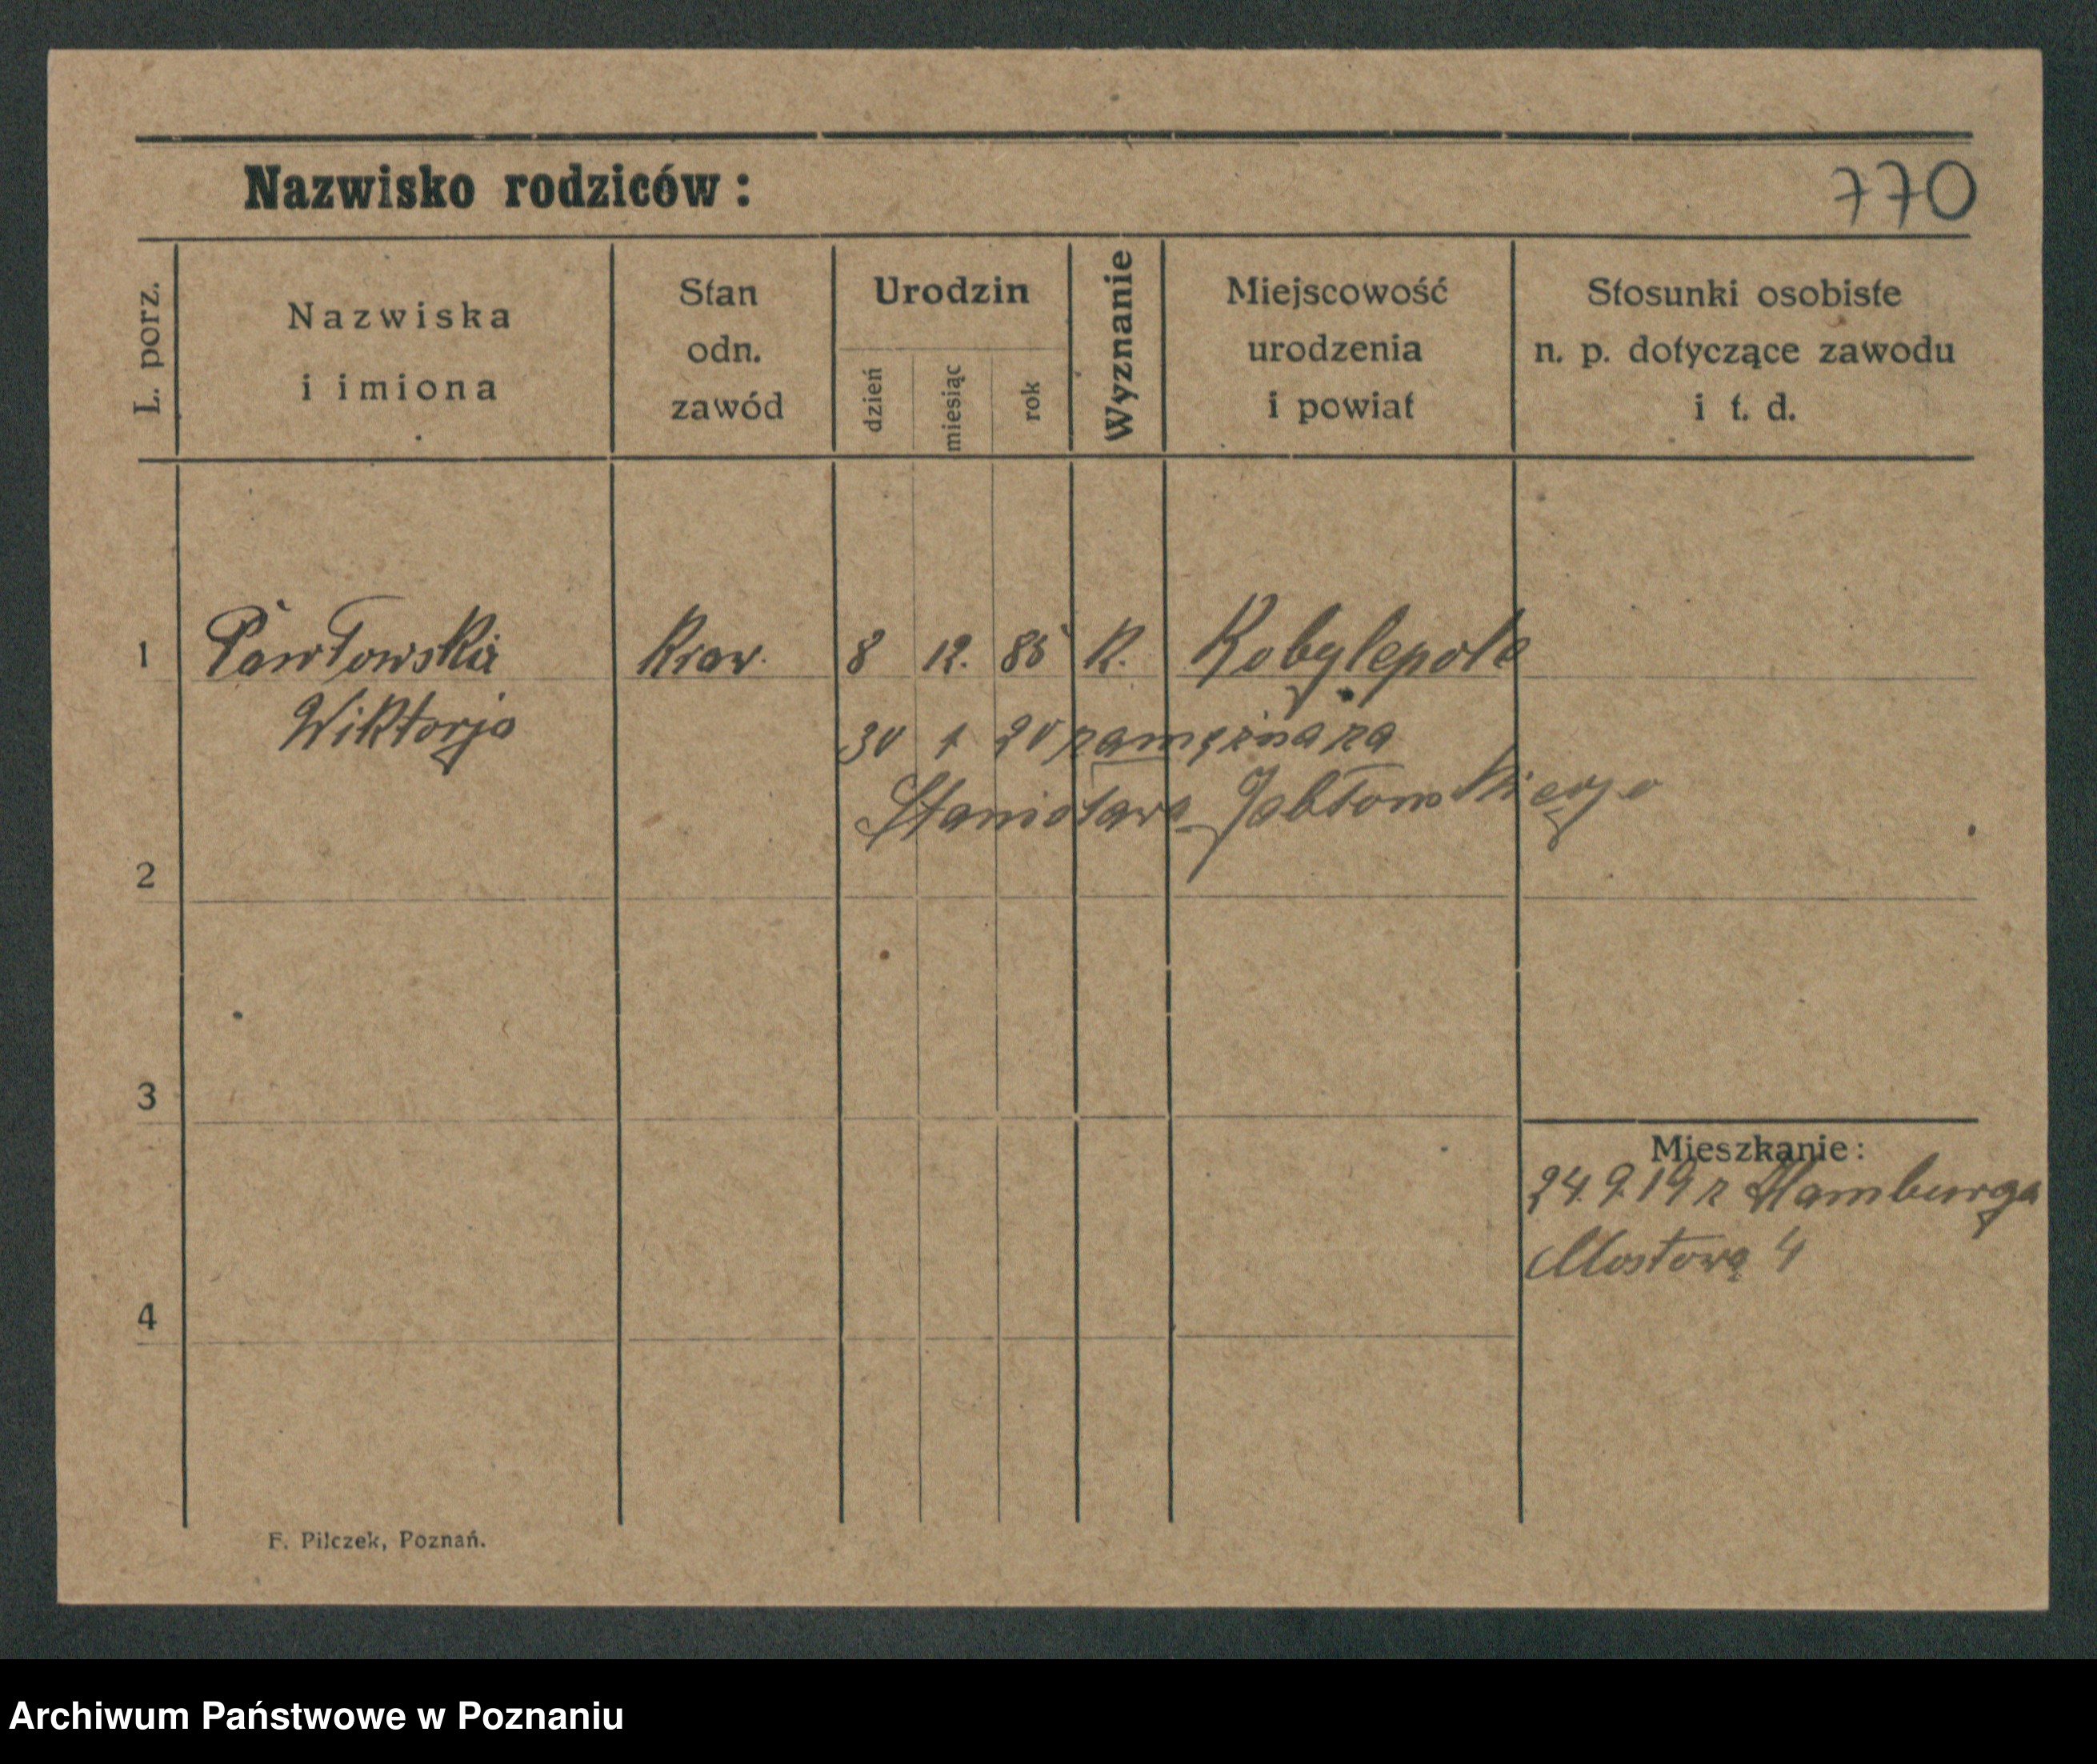 Nazwisko rodziców:
770
L. porz.
Nazwiska
i imiona
Stan
odn.
zawód
Urodzin
dzień
miesiąc
rok
Wyznanie
Miejscowość
urodzenia
i powiat
Stosunki osobiste
n. p. dotyczące zawodu
i t. d.
1 Pawłowska Kraw. 8 12. 85 K. Kobylepole
Wiktorja 30 1 20 zamężna za
Stanisława Jabłonskiego
2
3
Mieszkanie:
24.9.19 z Hamburga
Mostowa 4
4
F. Pilczek, Poznań.
Archiwum Państwowe w Poznaniu